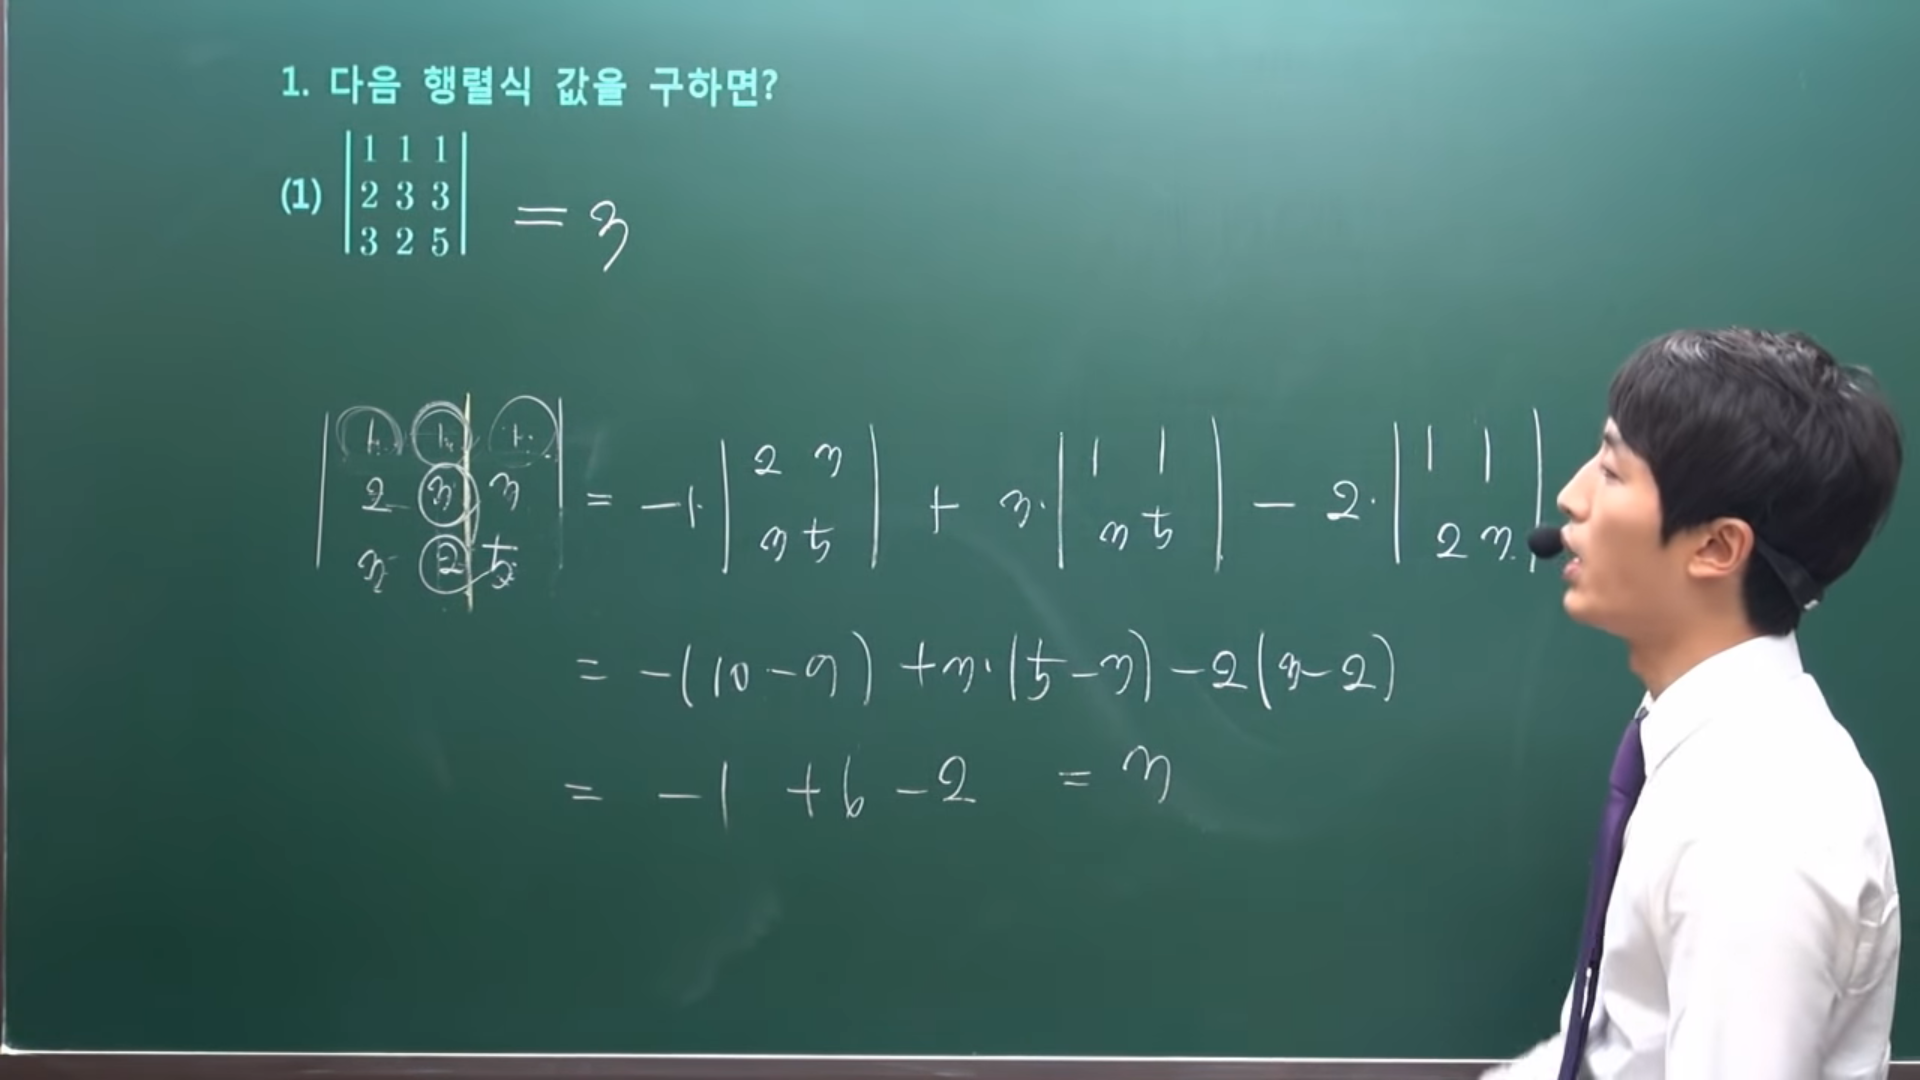 1. 다음 행렬식 값을 구하면?
(1) |1 1 1|
|2 3 3| = 3
|3 2 5|
|1 1 1| = -1·|2 3| + 3·|1 1| - 2·|1 1|
|2 3 3| |3 5| |3 5| |2 3|
|3 2 5|
= -(10-9) +3·(5-3) -2(3-2)
= -1 +6 -2 = 3